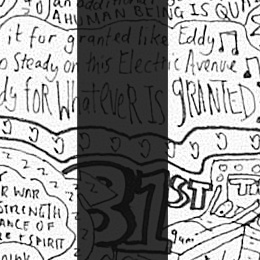 an additional
A HUMAN BEING IS QUA
it for granted like Eddy
o Steady on this Electric Avenue
dy for Whatever IS GRANTED
31ST
R WAR
STRENGTH
ANCE OF
SPIRIT
9am